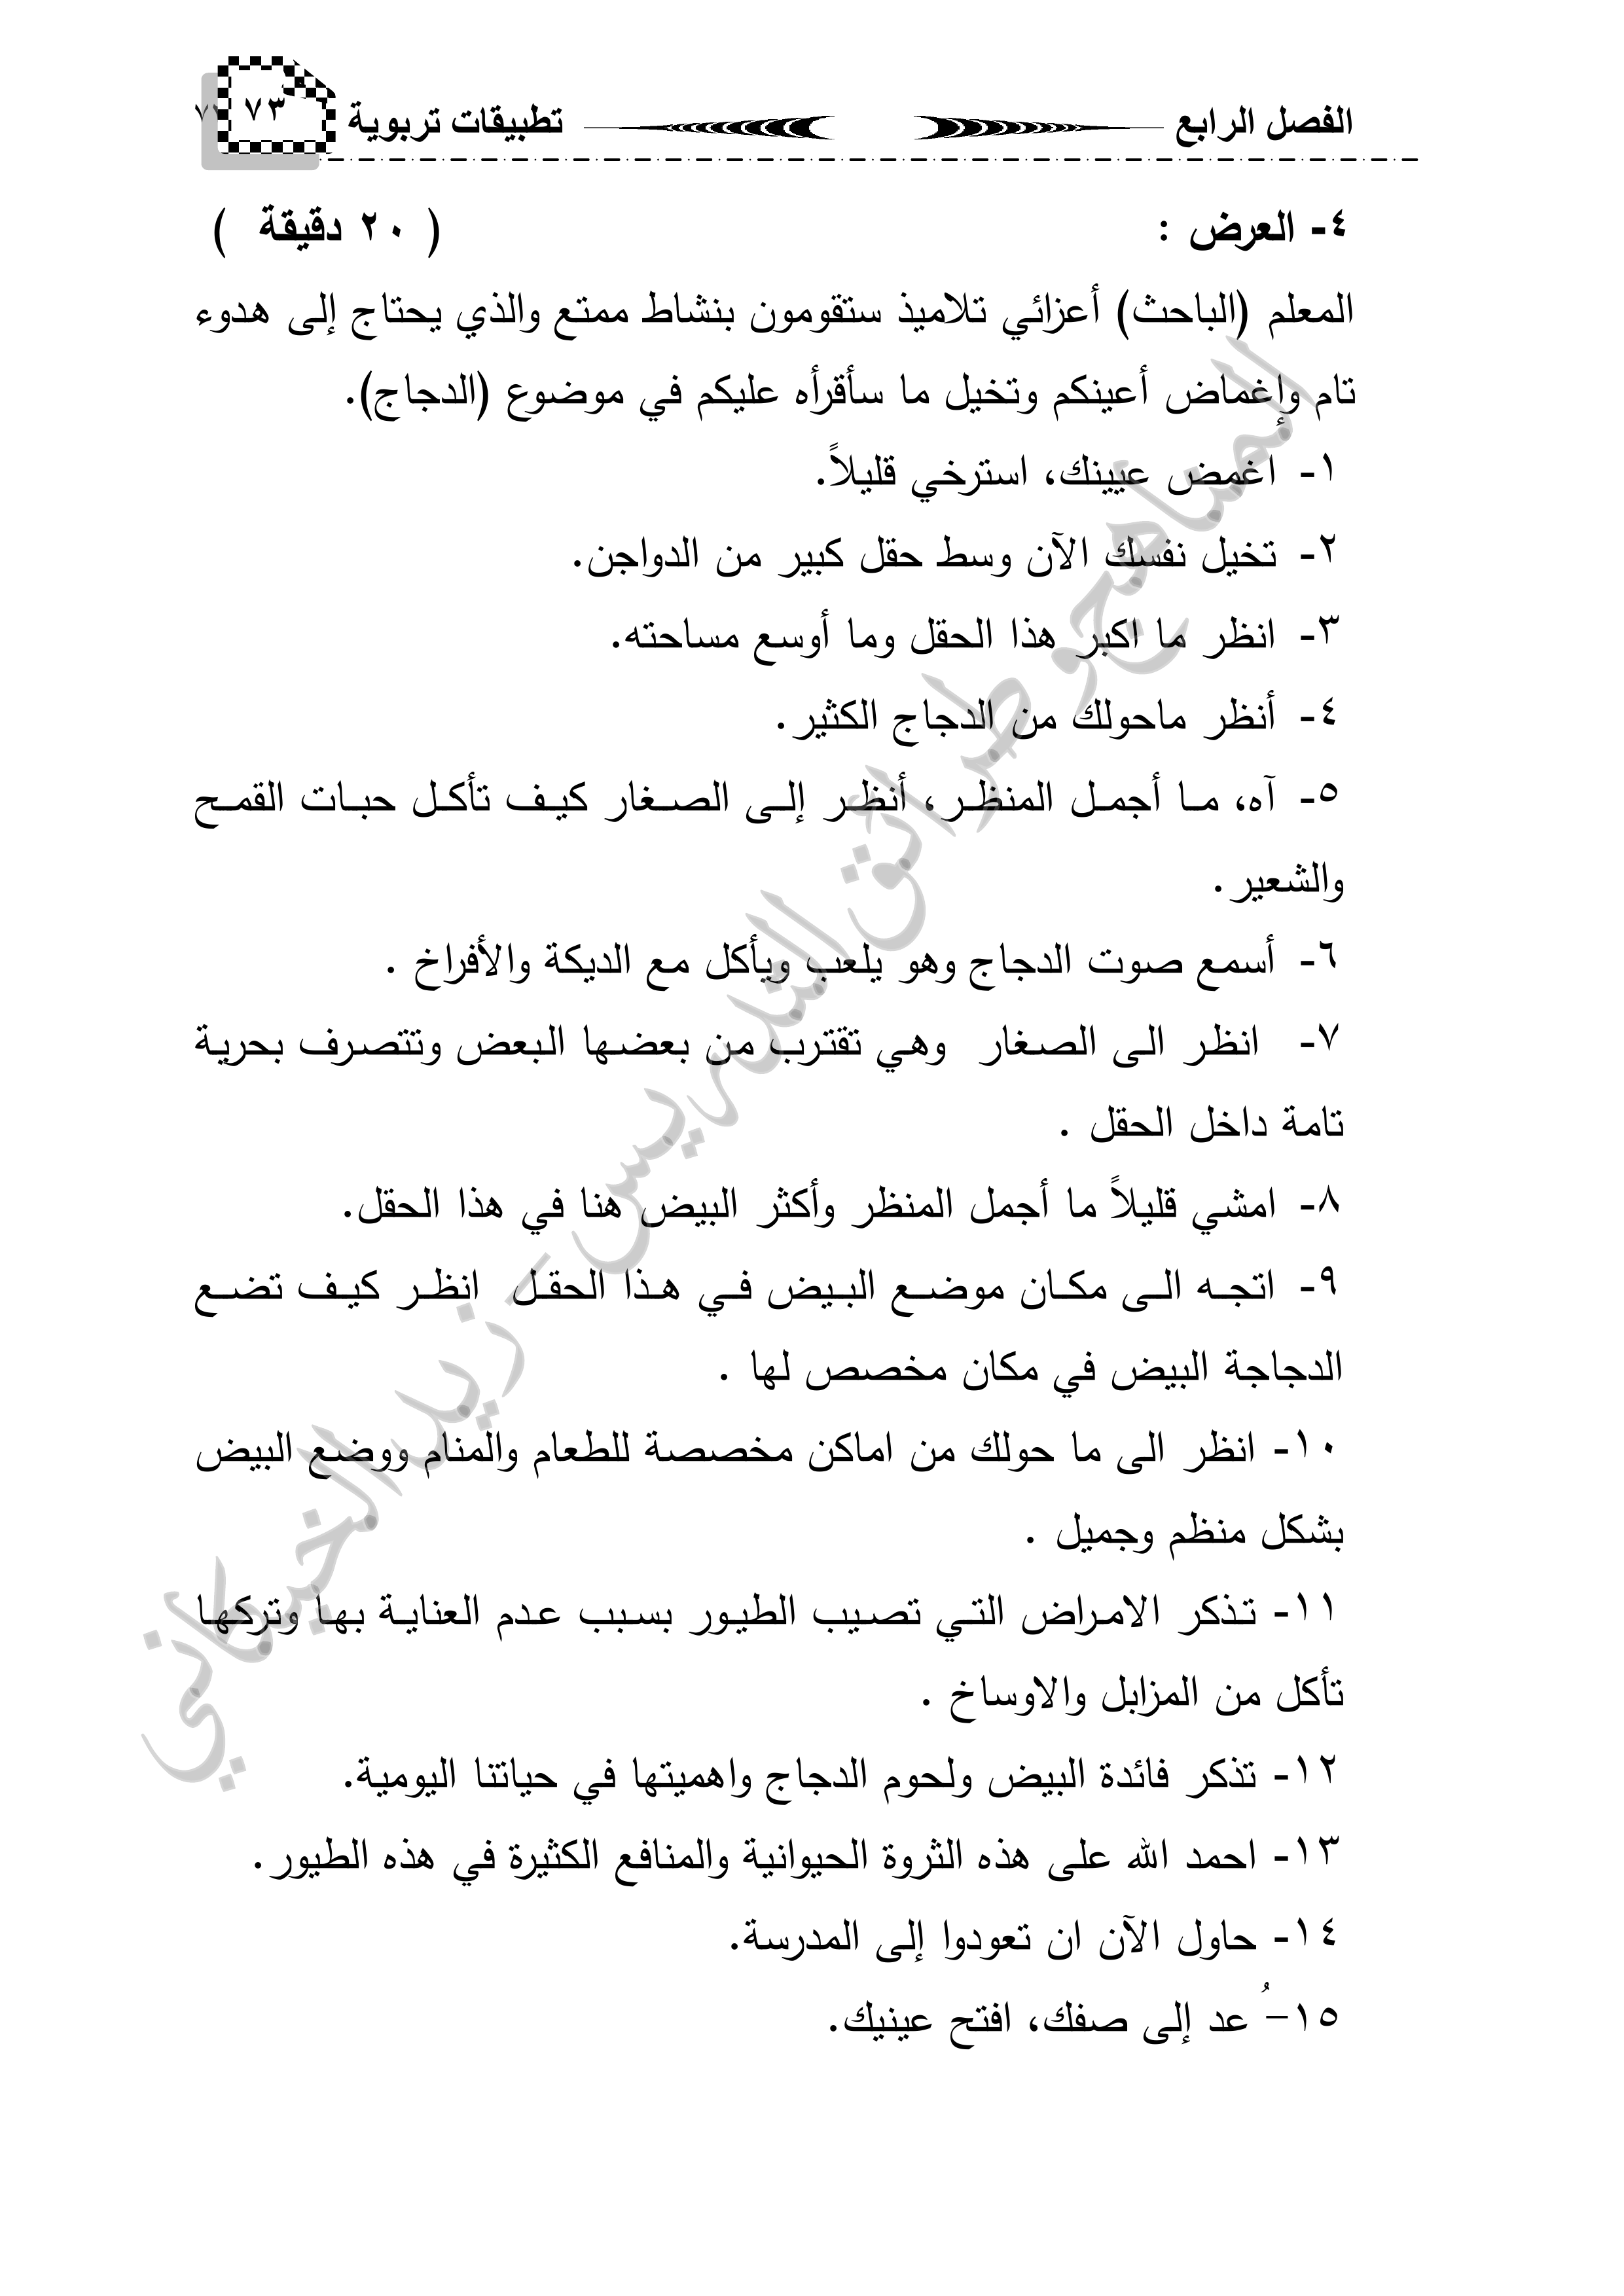 الفصل الرابع تطبيقات تربوية ٧٣
٤- العرض : ( ٢٠ دقيقة )
المعلم (الباحث) أعزائي تلاميذ ستقومون بنشاط ممتع والذي يحتاج إلى هدوء
تام وإغماض أعينكم وتخيل ما سأقرأه عليكم في موضوع (الدجاج).
١- اغمض عيينك، استرخي قليلاً.
٢- تخيل نفسك الآن وسط حقل كبير من الدواجن.
٣- انظر ما اكبر هذا الحقل وما أوسع مساحته.
٤- أنظر ماحولك من الدجاج الكثير.
٥- آه، ما أجمل المنظر، أنظر إلى الصغار كيف تأكل حبات القمح
والشعير.
٦- أسمع صوت الدجاج وهو يلعب ويأكل مع الديكة والأفراخ .
٧- انظر الى الصغار وهي تقترب من بعضها البعض وتتصرف بحرية
تامة داخل الحقل .
٨- امشي قليلاً ما أجمل المنظر وأكثر البيض هنا في هذا الحقل.
٩- اتجه الى مكان موضع البيض في هذا الحقل انظر كيف تضع
الدجاجة البيض في مكان مخصص لها .
١٠- انظر الى ما حولك من اماكن مخصصة للطعام والمنام ووضع البيض
بشكل منظم وجميل .
١١- تذكر الامراض التي تصيب الطيور بسبب عدم العناية بها وتركها
تأكل من المزابل والاوساخ .
١٢- تذكر فائدة البيض ولحوم الدجاج واهميتها في حياتنا اليومية.
١٣- احمد الله على هذه الثروة الحيوانية والمنافع الكثيرة في هذه الطيور.
١٤- حاول الآن ان تعودوا إلى المدرسة.
١٥-ُ عد إلى صفك، افتح عينيك.
المناهج وطرائق التدريس - زيد الخيكاني